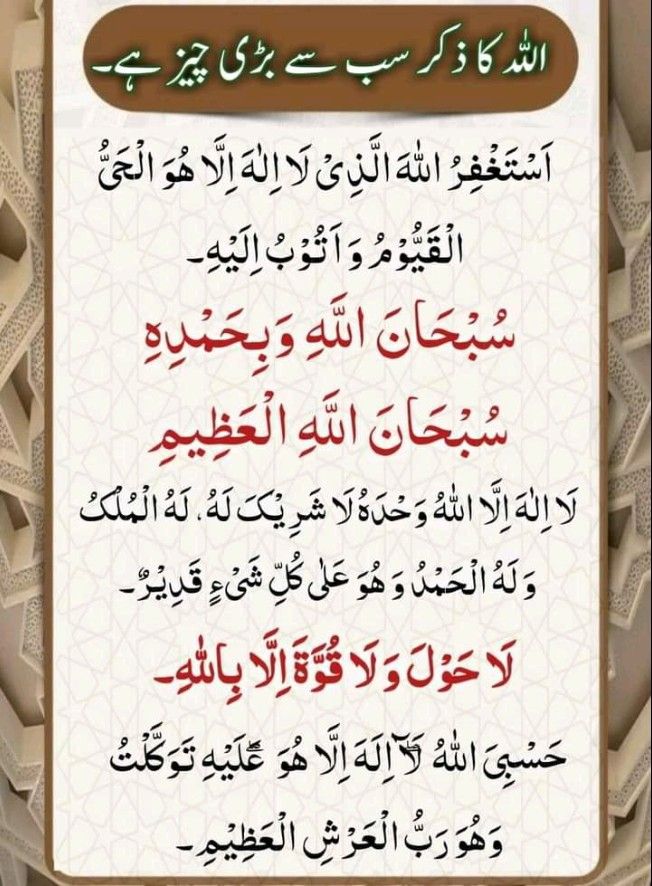 اللہ کا ذکر سب سے بڑی چیز ہے۔
اَسْتَغْفِرُ اللهَ الَّذِیْ لَا اِلٰهَ اِلَّا هُوَ الْحَیُّ
الْقَیُّوْمُ وَ اَتُوْبُ اِلَیْهِ۔
سُبْحَانَ اللَّهِ وَبِحَمْدِهِ
سُبْحَانَ اللَّهِ الْعَظِيمِ
لَا اِلٰهَ اِلَّا اللهُ وَحْدَهٗ لَا شَرِیْکَ لَهٗ، لَهُ الْمُلْکُ
وَ لَهُ الْحَمْدُ وَ هُوَ عَلٰی کُلِّ شَیْءٍ قَدِیْرٌ۔
لَا حَوْلَ وَ لَا قُوَّةَ اِلَّا بِاللهِ۔
حَسْبِیَ اللهُ لَاۤ اِلٰهَ اِلَّا هُوَ ؕ عَلَیْهِ تَوَکَّلْتُ
وَ هُوَ رَبُّ الْعَرْشِ الْعَظِیْمِ۔